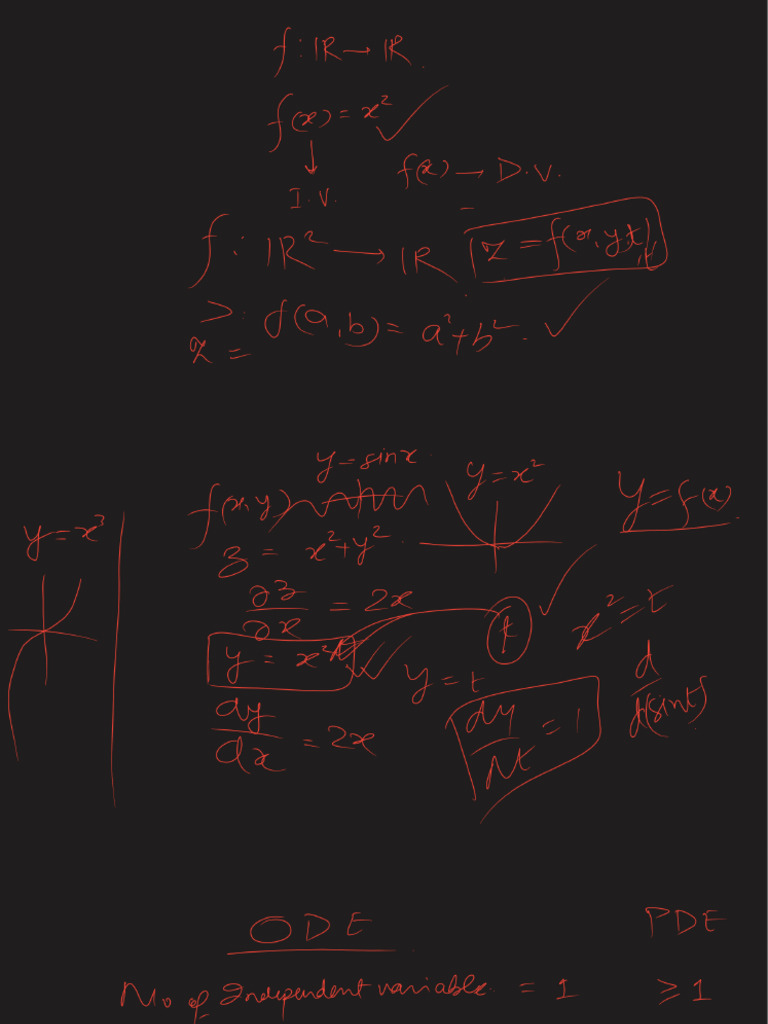 f : ℝ → ℝ
f(x) = x²
↓
I.V.
f(x) → D.V.
f : ℝ² → ℝ
z = f(x, y, t)
z = f(a, b) = a² + b².
y = sinx
y = x²
y = f(x)
y = x³
f(x, y)
z = x² + y²
∂z/∂x = 2x
t
x² = t
y = x²
y = t
d/d(sint)
dy/dx = 2x
dy/dt = 1
ODE
PDE
No of Independent variable = 1
≥ 1